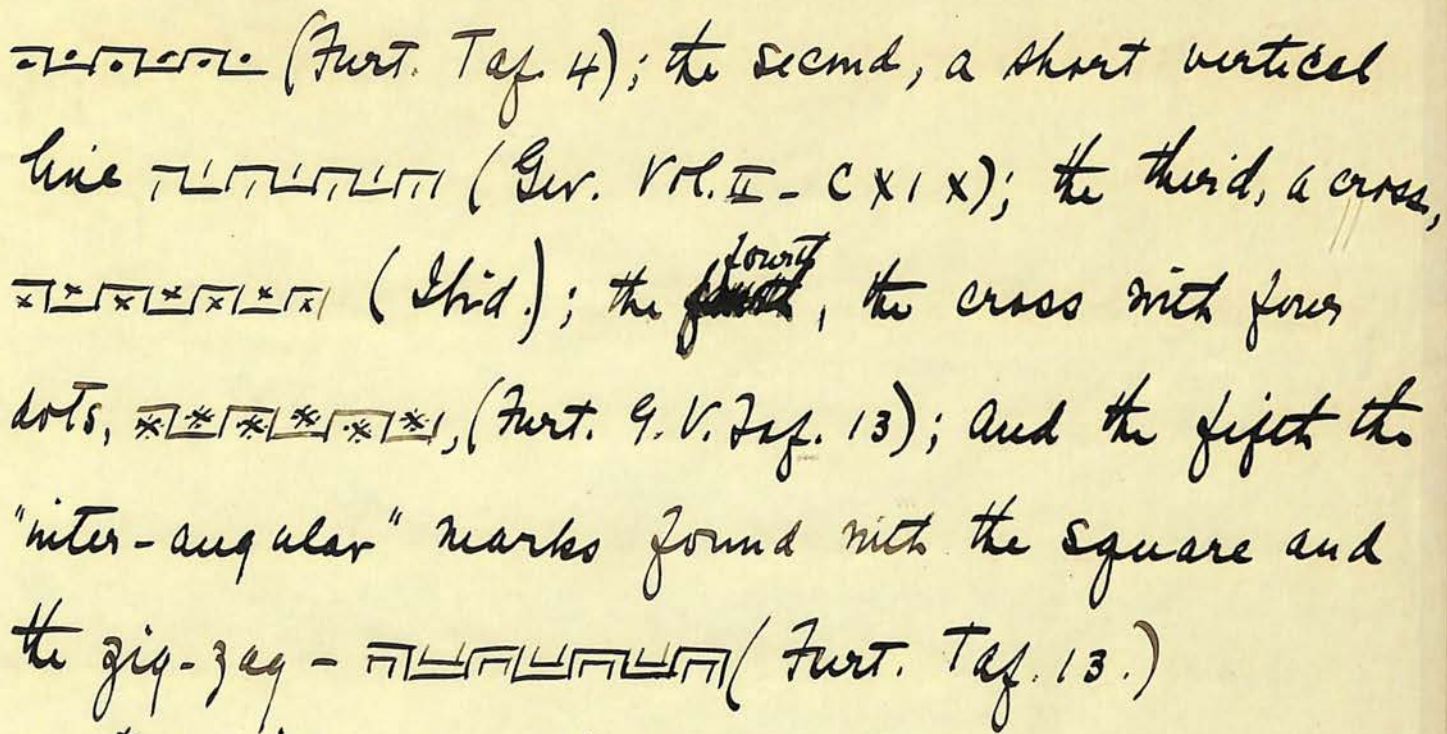 (Furt. Taf. 4); the second, a short vertical
line (Ger. Vol. II - CXIX); the third, a cross,
(Ibid.); the fourth, the cross with four
dots, , (Furt. G. V. Taf. 13); and the fifth the
"inter-angular" marks found with the square and
the zig-zag - (Furt. Taf. 13.)